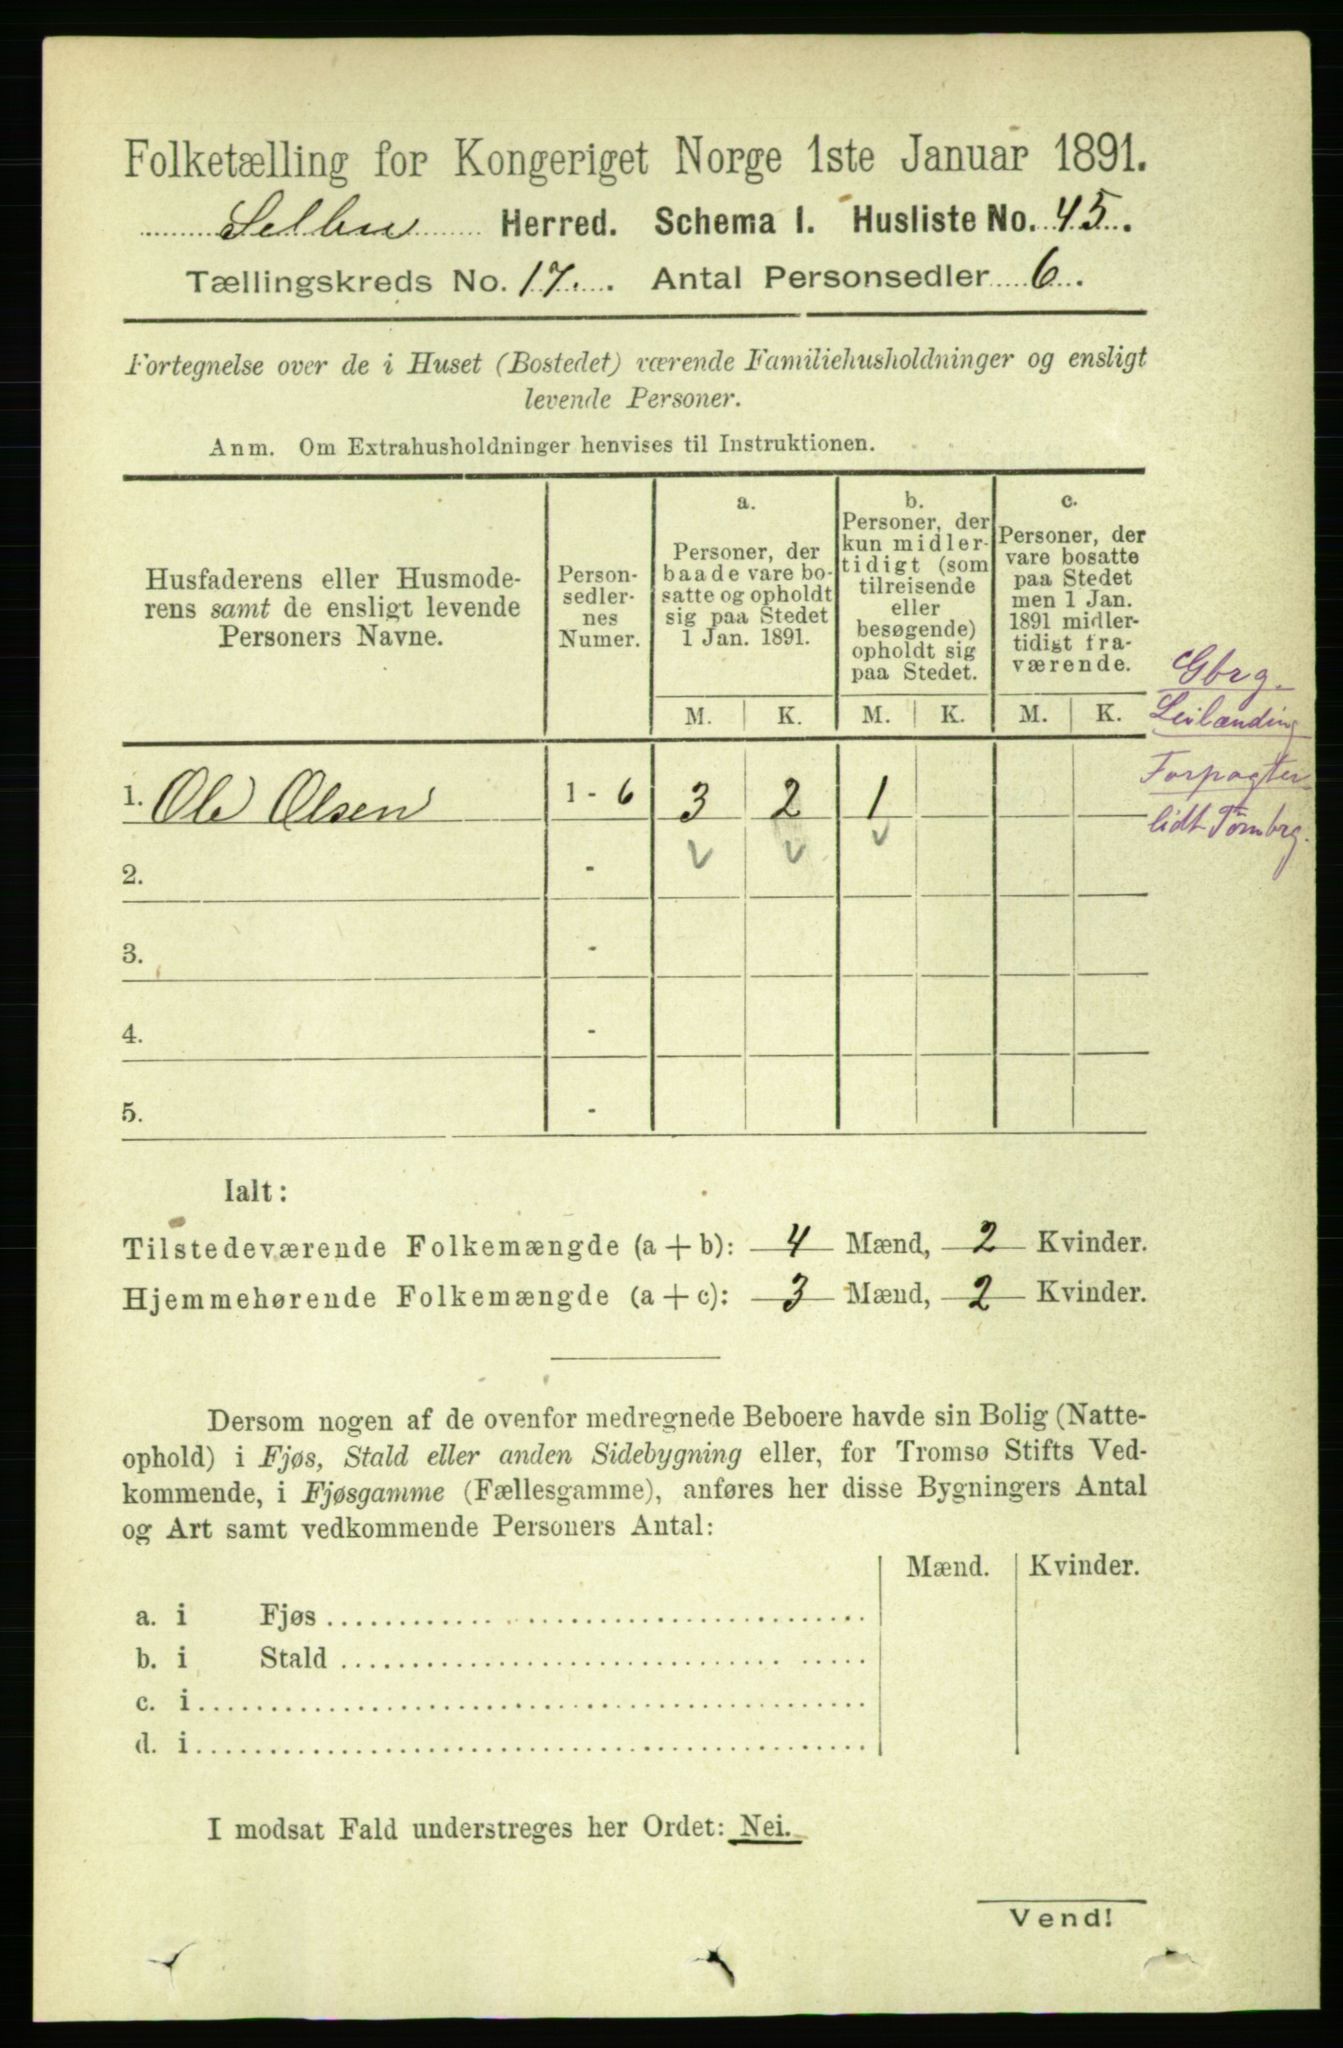 Folketælling for Kongeriget Norge 1ste Januar 1891.
Selbu Herred. Schema I. Husliste No. 45.
Tællingskreds No. 17. Antal Personsedler 6.
Fortegnelse over de i Huset (Bostedet) værende Familiehusholdninger og ensligt
levende Personer.
Anm. Om Extrahusholdninger henvises til Instruktionen.
Husfaderens eller Husmode-
rens samt de ensligt levende
Personers Navne.
Person-
sedler-
nes
Numer.
a.
Personer, der
baade vare bo-
satte og opholdt
sig paa Stedet
1 Jan. 1891.
b.
Personer, der
kun midler-
tidigt (som
tilreisende
eller
besøgende)
opholdt sig
paa Stedet.
c.
Personer, der
vare bosatte
paa Stedet
men 1 Jan.
1891 midler-
tidigt fra-
værende.
M. K. M. K. M. K.
Gbrg.
Leilænding
Forpagter
lidt Tømbrg.
1. Ole Olsen 1 - 6 3 2 1
2. -
3. -
4. -
5. -
Ialt:
Tilstedeværende Folkemængde (a + b): 4 Mænd, 2 Kvinder.
Hjemmehørende Folkemængde (a + c): 3 Mænd, 2 Kvinder.
Dersom nogen af de ovenfor medregnede Beboere havde sin Bolig (Natte-
ophold) i Fjøs, Stald eller anden Sidebygning eller, for Tromsø Stifts Ved-
kommende, i Fjøsgamme (Fællesgamme), anføres her disse Bygningers Antal
og Art samt vedkommende Personers Antal:
Mænd. Kvinder.
a. i Fjøs
b. i Stald
c. i
d. i
I modsat Fald understreges her Ordet: Nei.
Vend!